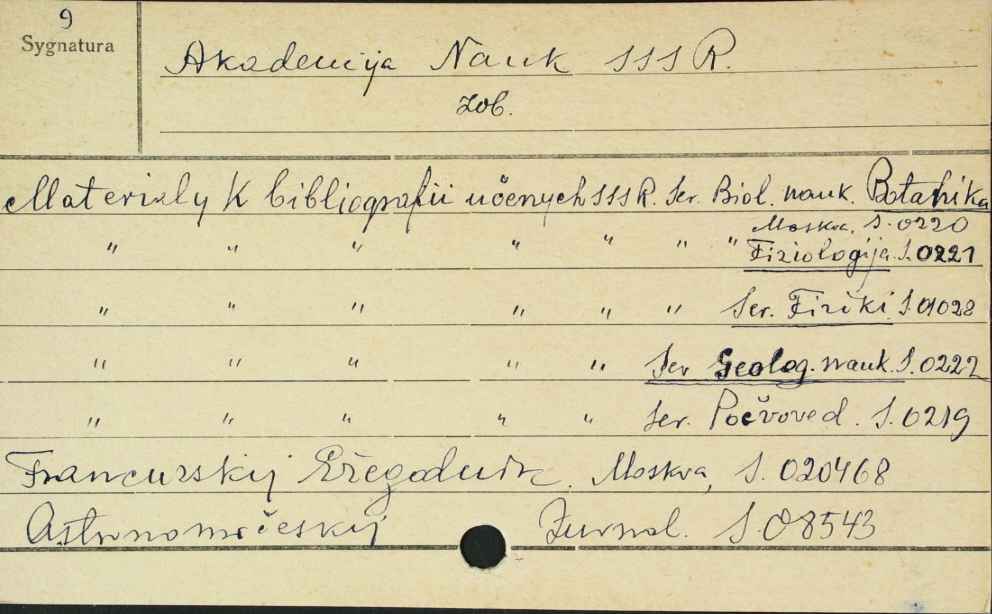 9
Sygnatura
Akademija Nauk SSSR.
zob.
Materialy k bibliografii učenych SSSR. Ser. Biol. nauk. Botanika
Moskva, S.0220
" " " " " " " Fiziologija S.0221
" " " " " " Ser. Fiziki S.01028
" " " " " Ser Geolog. nauk. S.0222
" " " " " Ser. Počvoved. S.0219
Francuzskij Ežegodnik. Moskva, S.020468
Astronomičeskij Žurnal. S.08543